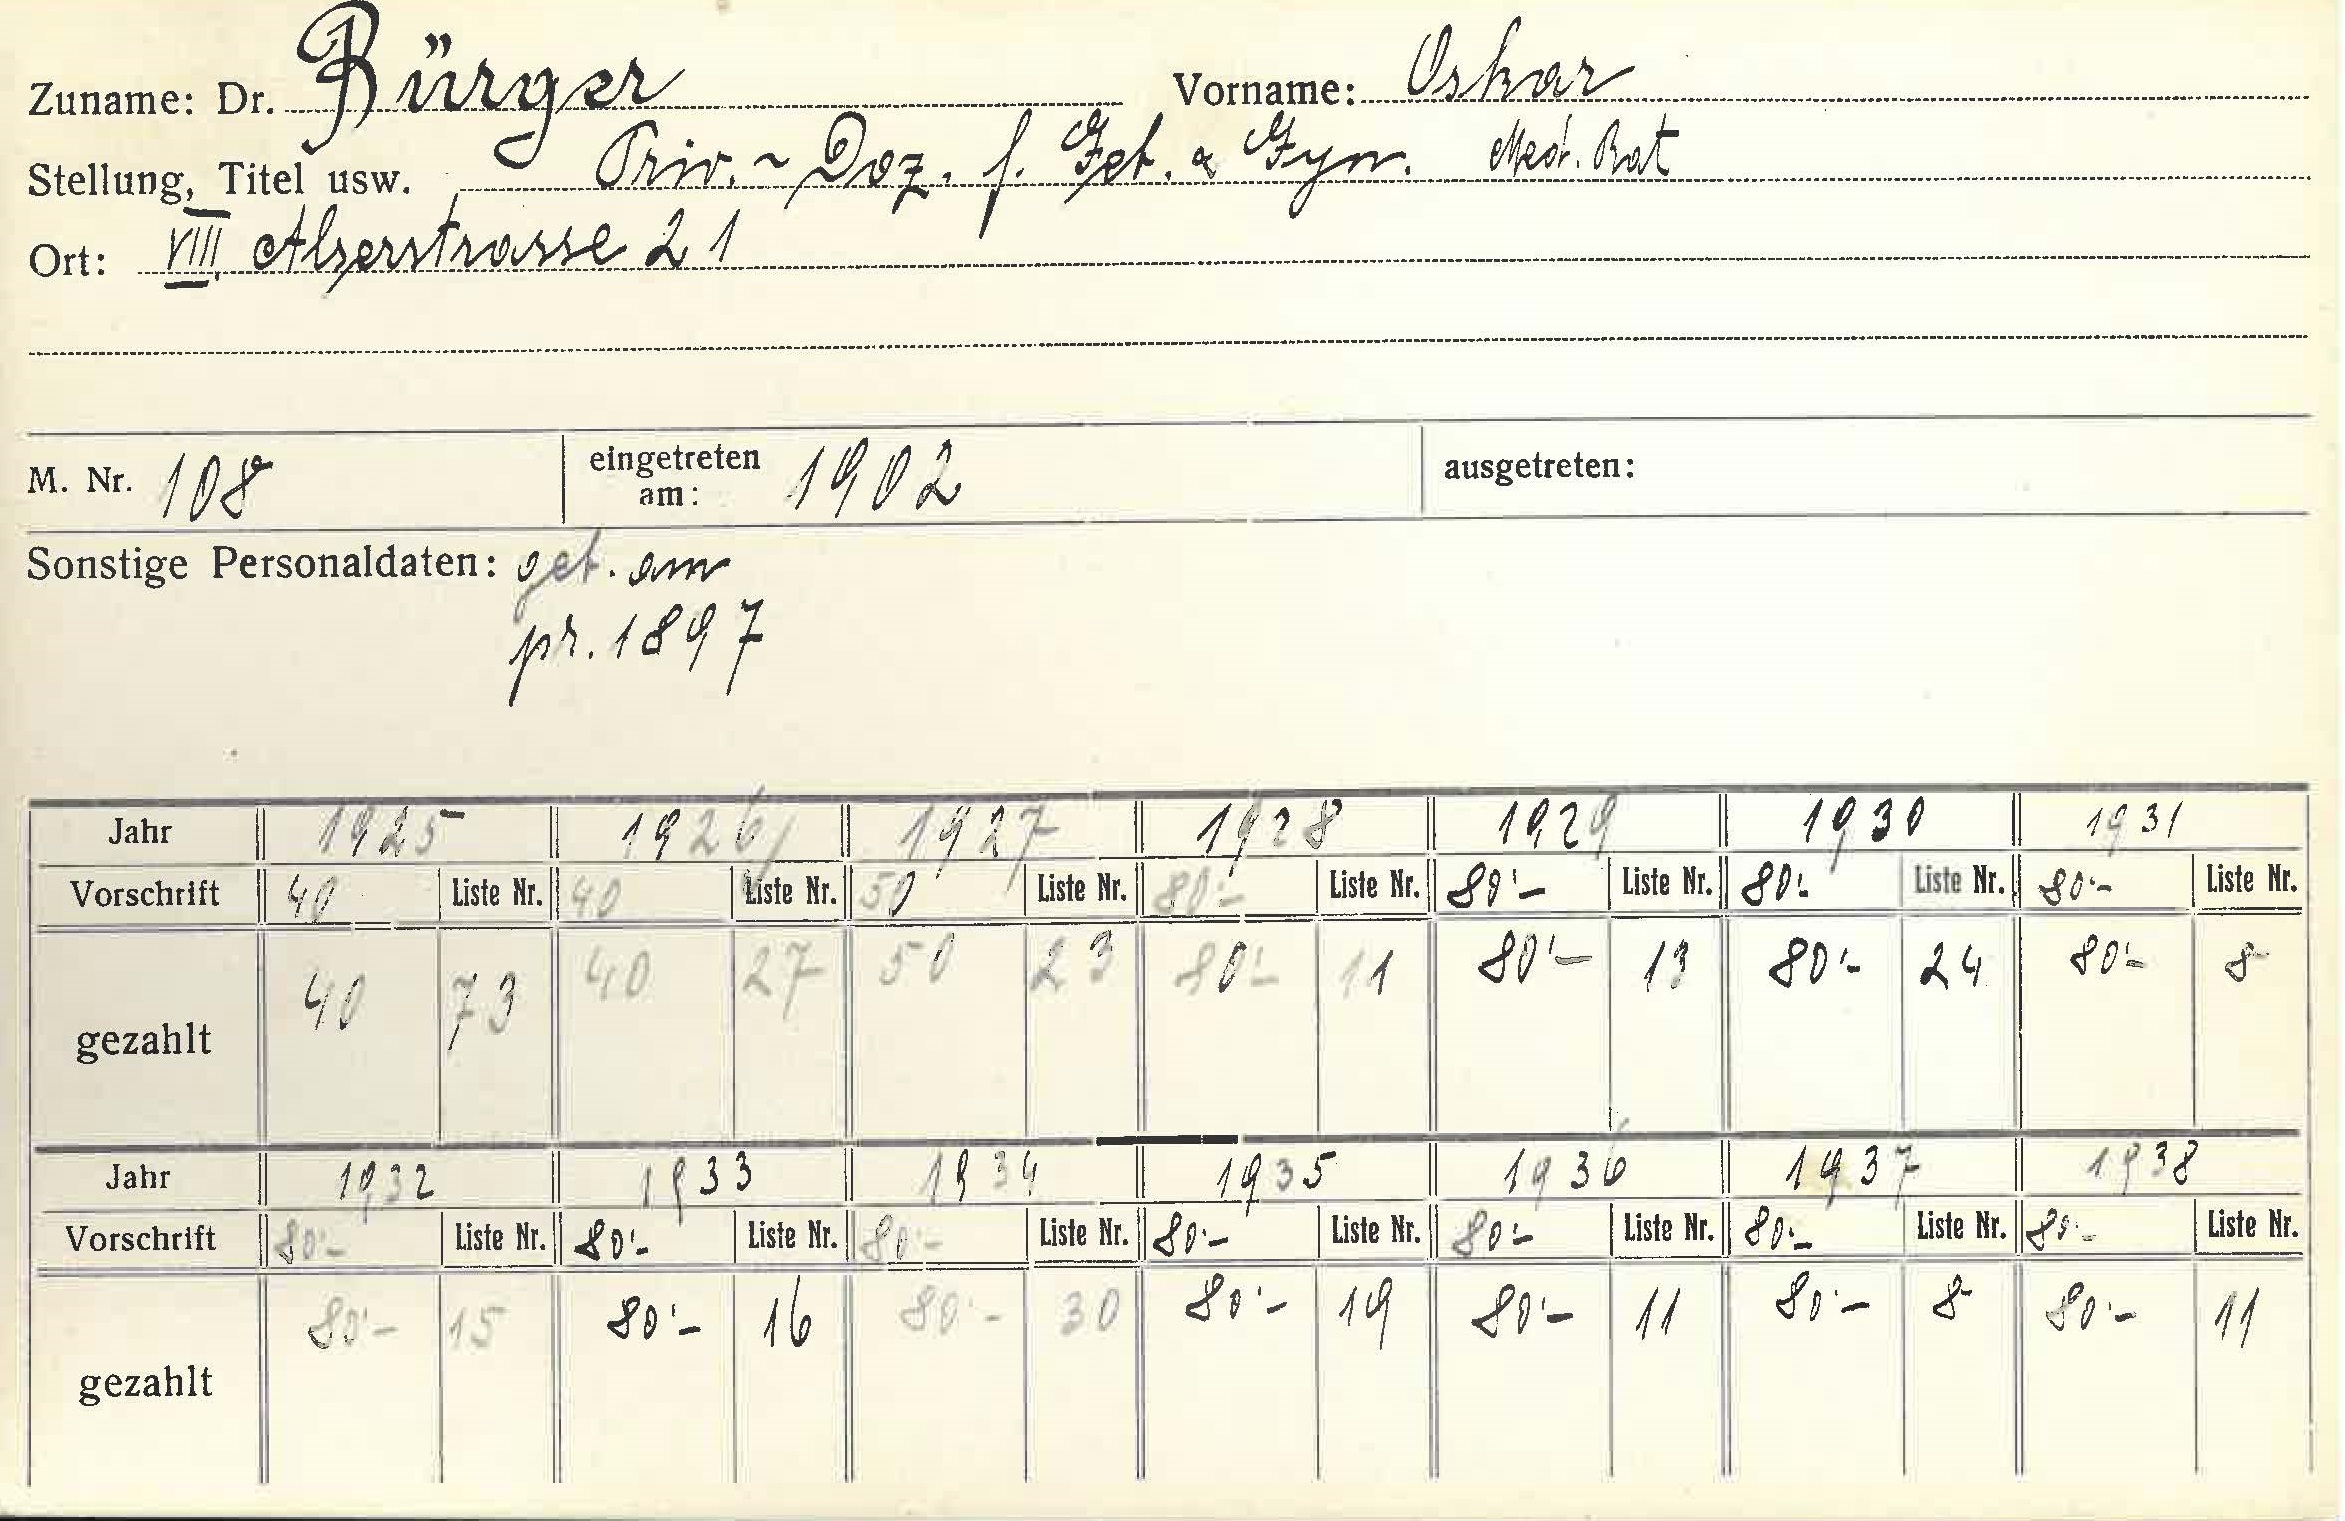 Zuname: Dr. Bürger Vorname: Oskar
Stellung, Titel usw. Priv.-Doz. f. Geb. & Gyn. Med. Rat
Ort: VIII. Alserstrasse 21
M. Nr. 108 eingetreten am: 1902 ausgetreten:
Sonstige Personaldaten: geb. am
pr. 1897
Jahr 1925 1926 1927 1928 1929 1930 1931
Vorschrift 40 Liste Nr. 40 Liste Nr. 50 Liste Nr. 80'- Liste Nr. 80'- Liste Nr. 80'- Liste Nr. 80'- Liste Nr.
gezahlt 40 73 40 27 50 23 80'- 11 80'- 13 80'- 24 80'- 8
Jahr 1932 1933 1934 1935 1936 1937 1938
Vorschrift 80'- Liste Nr. 80'- Liste Nr. 80'- Liste Nr. 80'- Liste Nr. 80'- Liste Nr. 80'- Liste Nr. 80'- Liste Nr.
gezahlt 80'- 15 80'- 16 80'- 30 80'- 19 80'- 11 80'- 8 80'- 11